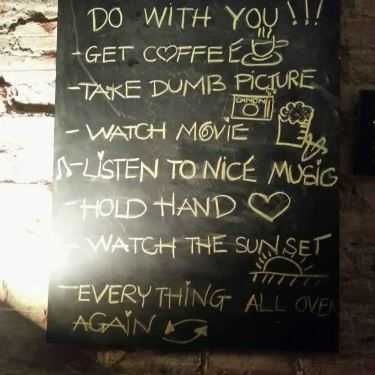 DO WITH YOU!!!
-GET COFFEE
-TAKE DUMB PICTURE
-WATCH MOVIE
-LISTEN TO NICE MUSIC
-HOLD HAND
-WATCH THE SUNSET
-EVERYTHING ALL OVER
AGAIN